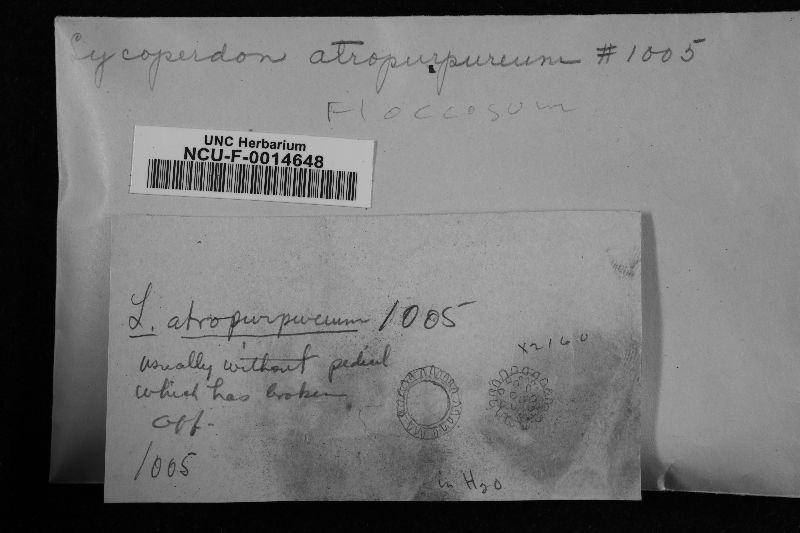 Lycoperdon atropurpureum #1005
Floccosum
UNC Herbarium
NCU-F-0014648
L. atropurpureum 1005
usually without pedicel
which has broken
off-
1005
x2160
in H2O